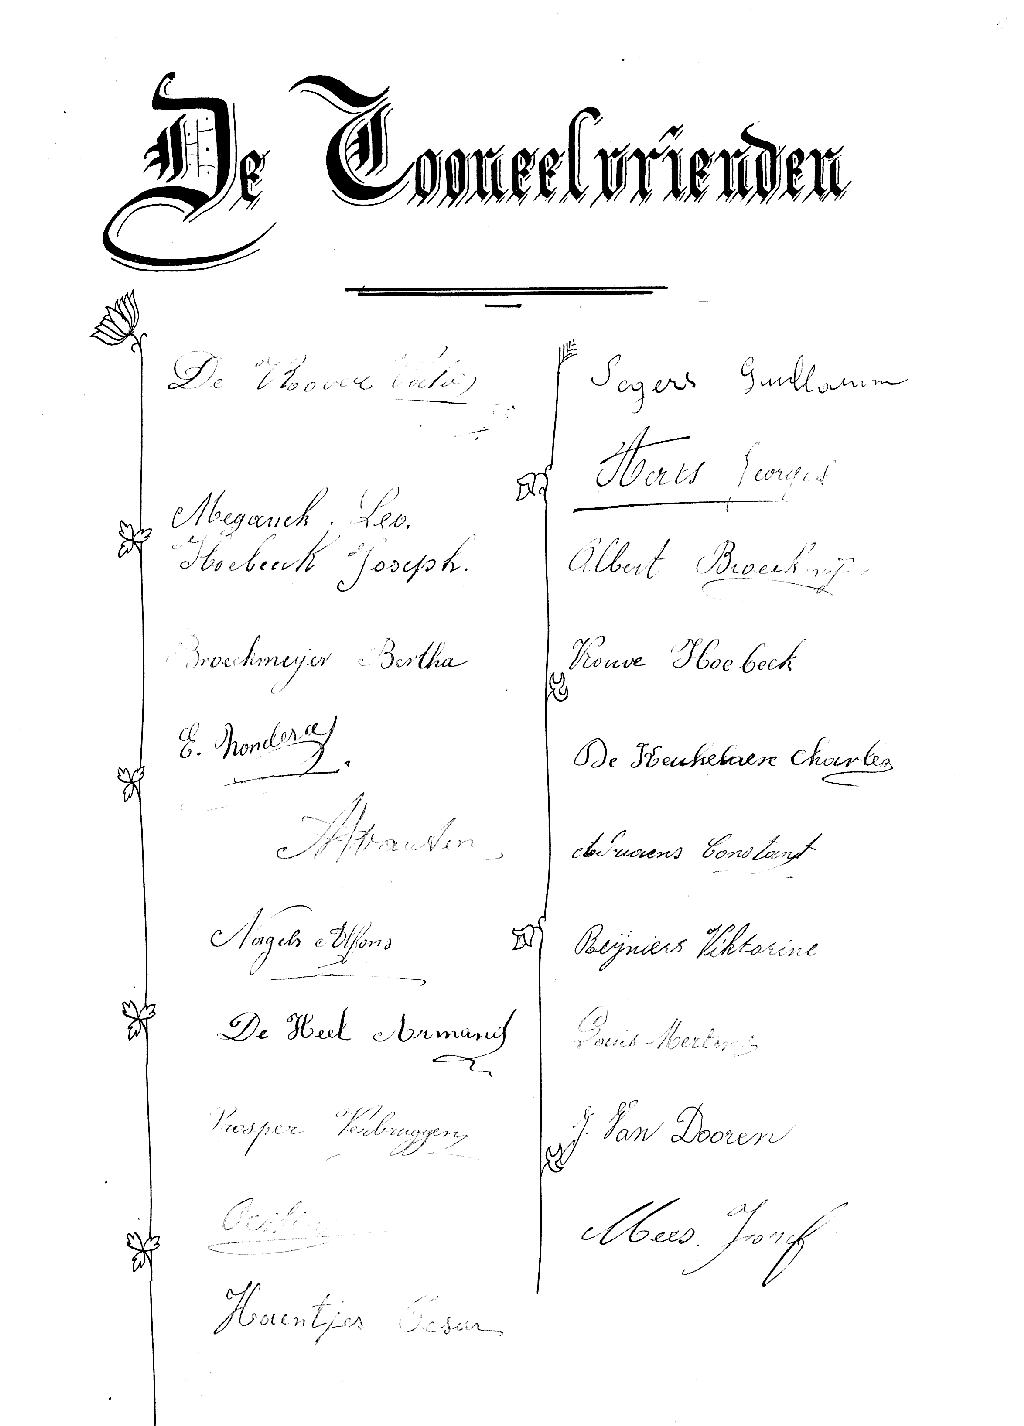 De Tooneelvrienden
De
Meganck. Leo.
Hoebeeck Joseph.
Broeckmeijer Bertha
E.
Nagels Alfons
De Heel Armand
Prosper Verbruggen
Haentjes Cesar
Segers Guillaume
Herts Georges
Albert
Vrouwe Hoebeeck
De Keukelaere Charles
Constant
Reijniers Viktorine
Louis Mertens
J. Van Dooren
Mees. Josef